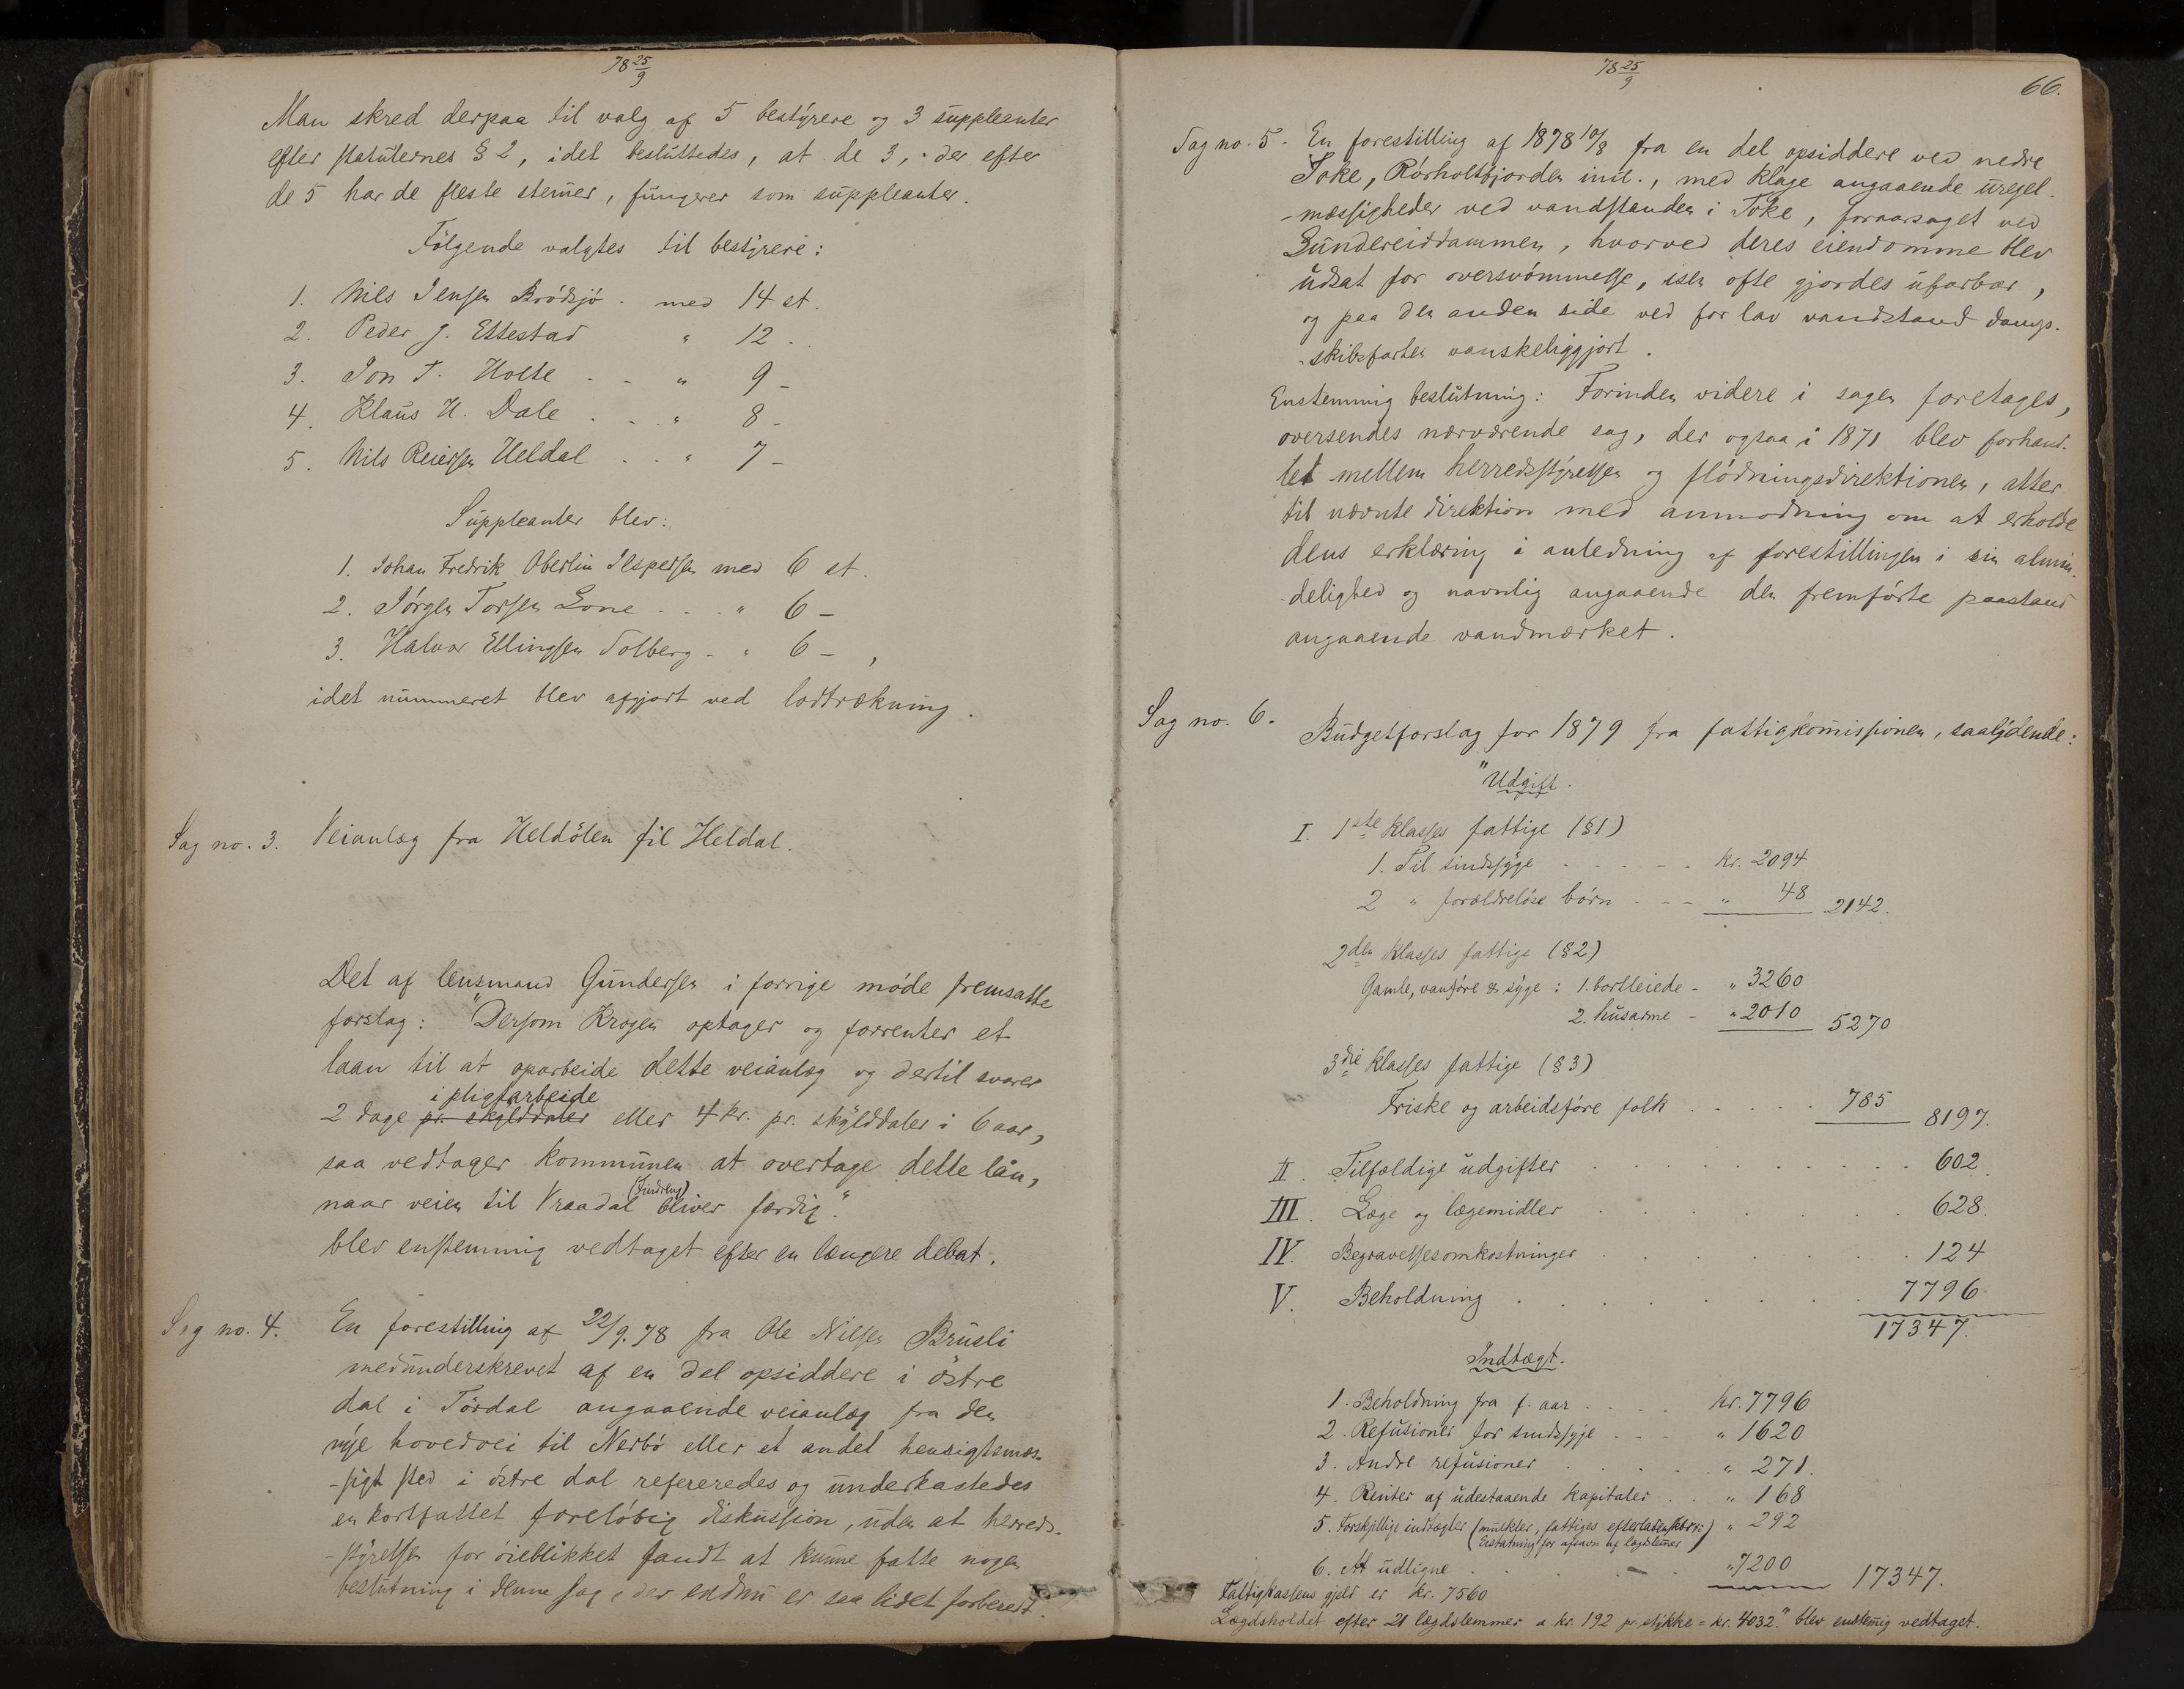 78 25/9
Man skred derpaa til valg af 5 bestyrere og 3 suppleanter
efter statuternes § 2, idet besluttedes, at de 3, der efter
de 5 har de fleste stemer, fungerer som suppleanter.
Følgende valgtes til bestyrere:
1. Nils Jensen Brødsjø . med 14 st.
2. Peder J. Ettestad " 12 .
3. Jon T. Holte . - " 9 -
4. Klaus H. Dale . . - " 8 -
5. Nils Reiersen Heldal . . " 7 -
Suppleanter blev:
1. Johan Fredrik Oberlin Jespersen med 6 st.
2. Jørgen Torsen Lone - . . " 6 -
3. Halvor Ellingsen Solberg - " 6 - ,
idet nummeret blev afgjort ved lodtrækning.
Sag no. 3. Veianlæg fra Heldølen til Heldal.
Det af lensmand Gundersen i forrige møde fremsatte
forslag: "Dersom Krogen optager og forrenter et
laan til at oparbeide dette veianlæg og dertil svarer
i pligtarbeide
2 dage pr. skylddaler eller 4 kr. pr. skylddaler i 6 aar,
saa vedtager kommunen at overtage dette lån,
(Findreng)
naar veien til Vraadal bliver færdig."
blev enstemmig vedtaget efter en længere debat.
Sag no. 4. En forestilling af 22/9. 78 fra Ole Nilsen Brusli
medunderskrevet af en del opsiddere i østre
dal i Tørdal angaaende veianlæg fra den
nye hovedvei til Nerbø eller et andet hensigtsmæs-
-sigt sted i østre dal refereredes og underkastedes
en kortfattet foreløbig diskussion, uden at herreds-
-styrelsen for øieblikket fandt at kunne fatte nogen
beslutning i denne sag, der endnu er saa lidet forberedt.
78 25/9
66.
Sag no. 5. En forestilling af 1878 10/8 fra en del opsiddere ved nedre
Toke, Rørholtfjorden incl., med klage angaaende uregel-
-mæssigheder ved vandstanden i Toke, foraarsaget ved
Lundereiddammen, hvorved deres eiendomme blev
udsat for oversvømmelse, isen ofte gjordes ufarbar,
og paa den anden side ved for lav vandstand damp-
-skibsfarten vanskeliggjort.
Enstemmig beslutning: Forinden videre i sagen foretages,
oversendes nærværende sag, der ogsaa i 1871 blev forhand-
let mellem herredsstyrelsen og flødningsdirektionen, atter
til nævnte direktion med anmodning om at erholde
dens erklæring i anledning af forestillingen i sin almin-
-delighed og navnlig angaaende den fremførte paastand
angaaende vandmærket.
Sag no. 6. Budgetforslag for 1879 fra fattigkomissionen, saalydende:
"Udgift.
I. 1ste klasses fattige (§1)
1. Til sindssyge . . . - - kr. 2094
2 " forældreløse børn . - - " 48 2142.
2den klasses fattige (§2)
Gamle, vanføre & syge: 1. bortleiede - " 3260
2. husarme - " 2010 5270
3die klasses fattige (§3)
Friske og arbeidsføre folk . . . . . 785 8197.
II. Tilfældige udgifter . . . . . . . . 602.
III. Læge og lægemidler . . . . . . . 628.
IV. Begravelsesomkostninger . . . . . . 124
V. Beholdning . . . . . . . . 7796.
17347.
Indtægt.
1. Beholdning fra f. aar . . . . kr. 7796
2. Refusioner for sindssyge . - - " 1620
3. Andre refusioner . . . . . " 271.
4. Renter af udestaaende kapitaler . . " 168
5. Forskjellige indtægter (mulkter, fattiges efterladenskaber: " 292
Erstatning for afsavn af lægdslemer)
6. At udligne . . . - . " 7200 17347.
Fattigkassens gjeld er kr. 7560
Lægdsholdet efter 21 lægdslemmer a kr. 192 pr. stykke = kr. 4032." blev enstemig vedtaget.